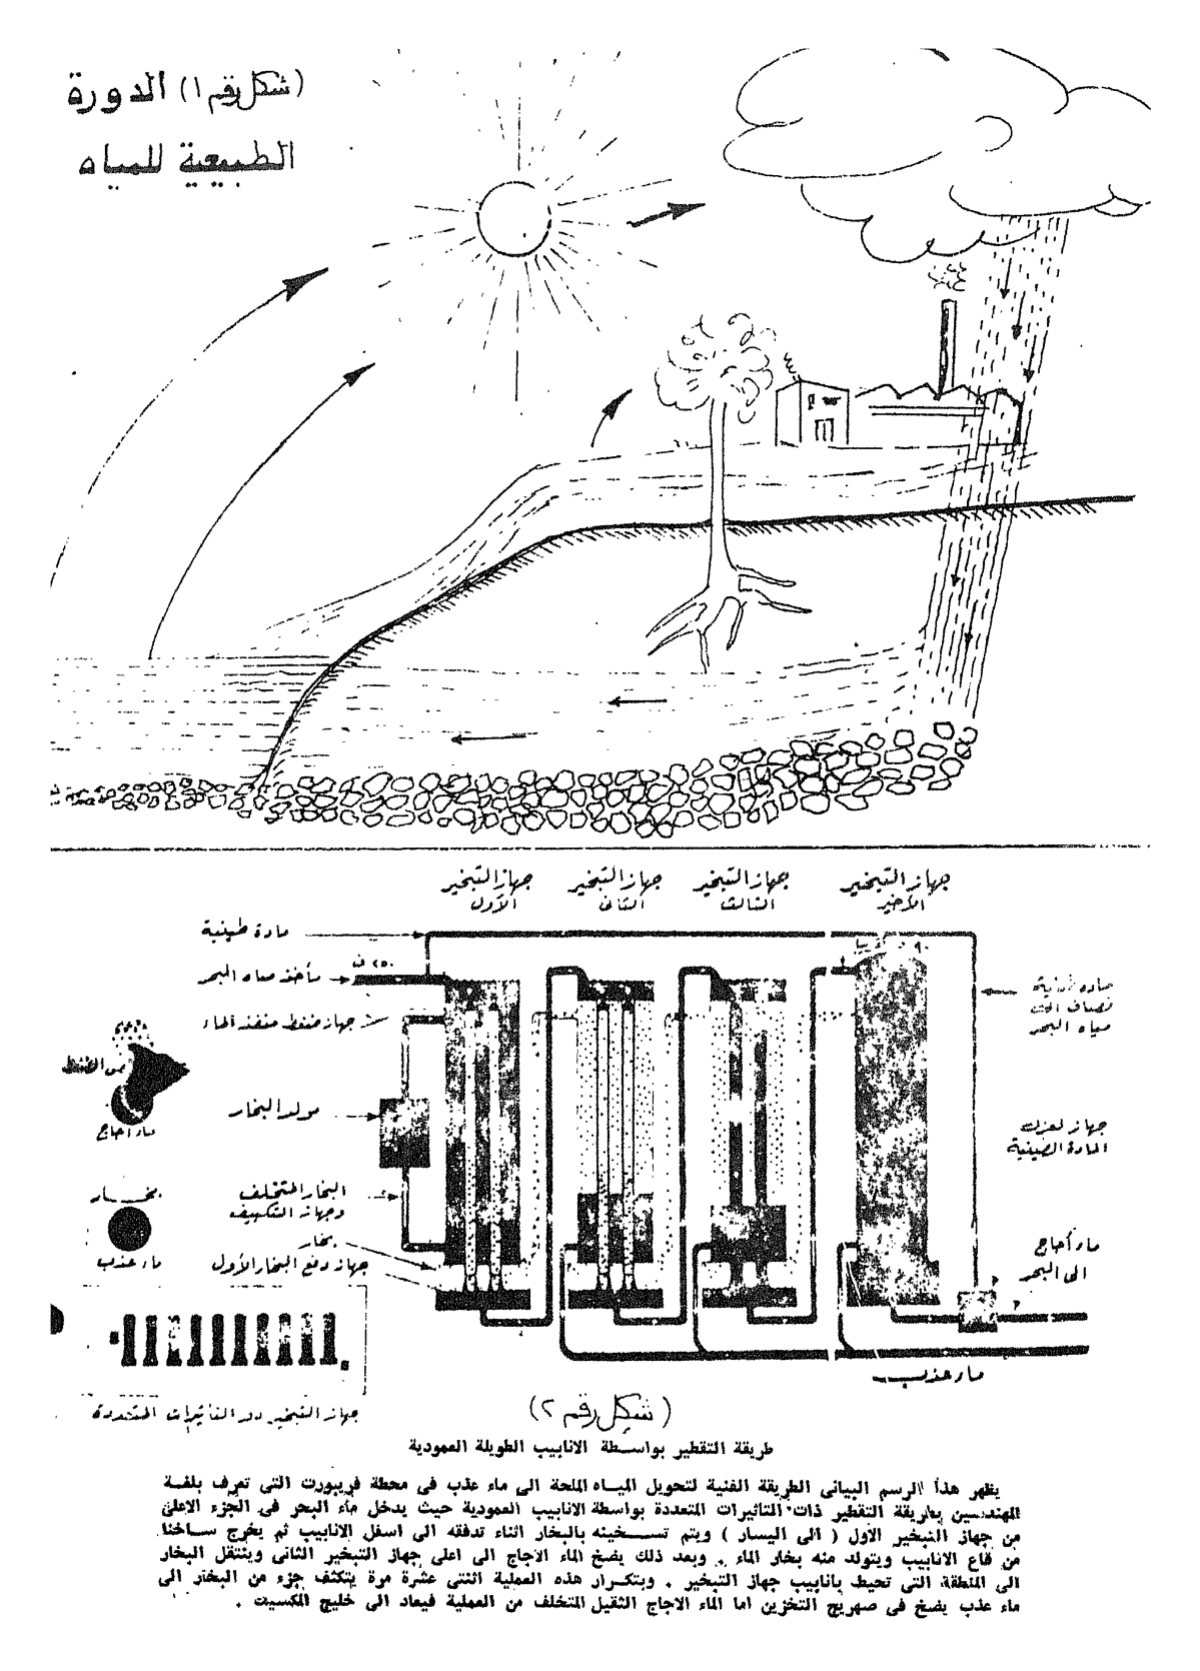 (شكل رقم ١) الدورة
الطبيعية للمياه
جهاز التبخير الأول
جهاز التبخير الثانى
جهاز التبخير الثالث
جهاز التبخير الأخير
مادة طينية
٢٥٠ ف
مأخذ مياه البحر
جهاز ضغط منفذ الماء
مولد البخار
البخار المتخلف
وجهاز التكييف
بخار
جهاز دفع البخار الأول
ماء أجاج
بخار
ماء عذب
مياه البحر
جهاز لعزل
المادة الصينية
ماء أجاج
الى البحر
ماء عذب
جهاز التبخير ذو التأثيرات المتعددة
(شكل رقم ٢)
طريقة التقطير بواسطة الانابيب الطويلة العمودية
يظهر هذا الرسم البيانى الطريقة الفنية لتحويل المياه الملحة الى ماء عذب فى محطة فريبورت التى تعرف بلغة
المهندسين بطريقة التقطير ذات التأثيرات المتعددة بواسطة الانابيب العمودية حيث يدخل ماء البحر فى الجزء الاعلى
من جهاز التبخير الاول ( الى اليسار ) ويتم تسخينه بالبخار اثناء تدفقه الى اسفل الانابيب ثم يخرج ساخنا
من قاع الانابيب ويتولد منه بخار الماء . وبعد ذلك يضخ الماء الاجاج الى اعلى جهاز التبخير الثانى وينتقل البخار
الى المنطقة التى تحيط بانابيب جهاز التبخير . وبتكرار هذه العملية اثنتى عشرة مرة يتكثف جزء من البخار الى
ماء عذب يضخ فى صهريج التخزين اما الماء الاجاج الثقيل المتخلف من العملية فيعاد الى خليج المكسيك .